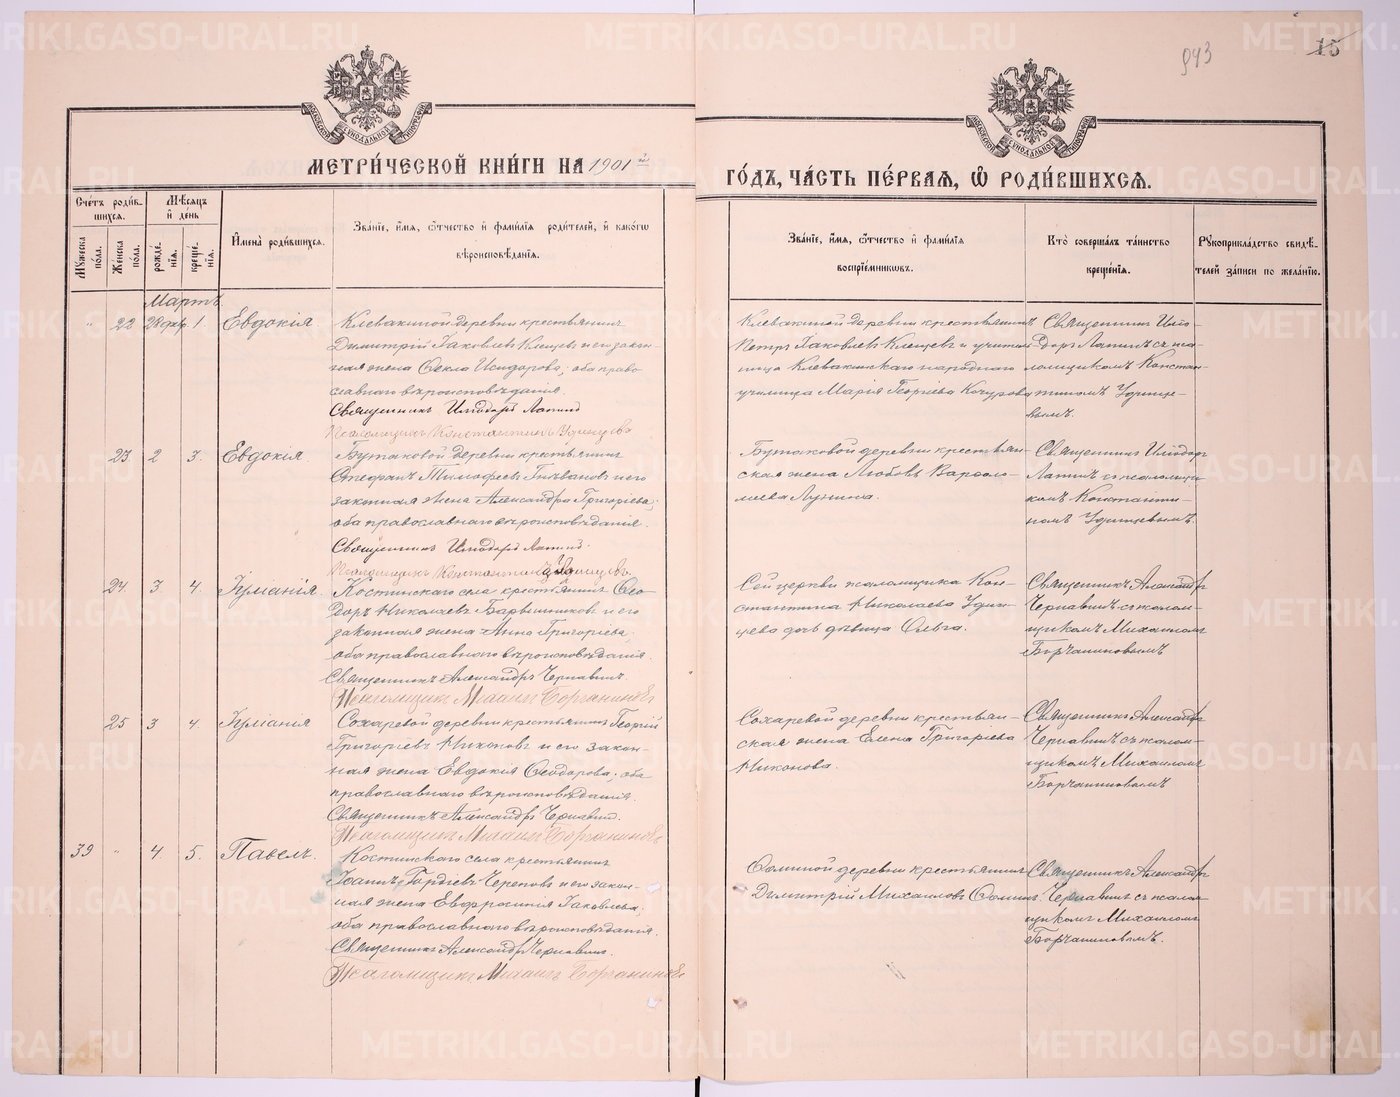 943
15
МЕТРИ́ЧЕСКОЙ КНИ́ГИ НА 1901 й
ГО́ДЪ, ЧА́СТЬ ПЕ́РВАЯ, Ѡ РОДИ́ВШИХСЯ.
Сче́тъ роди́в-
шихся.
Мѣ́сяцъ
и҆ де́нь
Му́жеска по́ла.
Же́нска по́ла.
рожде́-
нїя.
креще́-
нїя.
И҆мена̀ роди́вшихся.
Зва́нїе, и҆́мя, ѻ҆́тчество и҆ фами́лїя роди́телей, и҆ како́гѡ
вѣроисповѣ́данїя.
Зва́нїе, и҆́мя, ѻ҆́тчество и҆ фами́лїя
воспрїе́мниковъ.
Кто̀ соверша́лъ та́инство
креще́нїя.
Рукоприкла́дство свидѣ́-
телей за́писи по жела́нїю.
Мартъ
" 22 28 фвр 1 Евдокія.
Клевакиной деревни крестьянинъ
Димитрій Іаковлевъ Клещевъ и его закон-
ная жена Ѳекла Исидорова, оба право-
славнаго вѣроисповѣданія.
Священникъ Иліодоръ Лапинъ
Псаломщикъ Константинъ Удинцевъ
Клевакиной деревни крестьянинъ
Петръ Іаковлевъ Клещевъ и учитель-
ница Клевакинскаго народнаго
училища Марія Георгіева Кочурова
Священникъ Иліо-
доръ Лапинъ съ пса-
ломщикомъ Констан-
тиномъ Удинце-
вымъ.
23. 2 3. Евдокія.
Бутаковой деревни крестьянинъ
Стефанъ Тимофеевъ и его
законная жена Александра Григоріева,
оба православнаго вѣроисповѣданія.
Священникъ Иліодоръ Лапинъ.
Псаломщикъ Константинъ Удинцевъ.
Бутаковой деревни крестьян-
ская жена Любовь Варѳоло-
меева Лунина.
Священникъ Иліодоръ
Лапинъ съ псаломщи-
комъ Константи-
номъ Удинцевымъ.
24. 3. 4. Іуліанія.
Костинскаго села крестьянинъ Ѳео-
доръ Николаевъ Барышниковъ и его
законная жена Анна Григоріева,
оба православнаго вѣроисповѣданія.
Священникъ Александръ Чернавинъ
Псаломщикъ Михаилъ Борчаниновъ
Сей церкви псаломщика Кон-
стантина Николаева Удин-
цева дочь дѣвица Ольга.
Священникъ Александръ
Чернавинъ съ псалом-
щикомъ Михаиломъ
Борчаниновымъ
25 3 4 Іуліанія
Сохаревой деревни крестьянинъ Георгій
Григоріевъ Никоновъ и его закон-
ная жена Евдокія Ѳеодорова, оба
православнаго вѣроисповѣданія.
Священникъ Александръ Чернавинъ.
Псаломщикъ Михаилъ Борчаниновъ
Сохаревой деревни крестьян-
ская жена Елена Григоріева
Никонова.
Священникъ Александръ
Чернавинъ съ псалом-
щикомъ Михаиломъ
Борчаниновымъ
39 " 4. 5. Павелъ.
Костинскаго села крестьянинъ
Іоаннъ Гордіевъ Череповъ и его закон-
ная жена Евфросинія Іаковлева,
оба православнаго вѣроисповѣданія.
Священникъ Александръ Чернавинъ.
Псаломщикъ Михаилъ Борчаниновъ
Ѳоминой деревни крестьянинъ
Димитрій Михаиловъ Ѳоминъ.
Священникъ Александръ
Чернавинъ съ псалом-
щикомъ Михаиломъ
Борчаниновымъ.